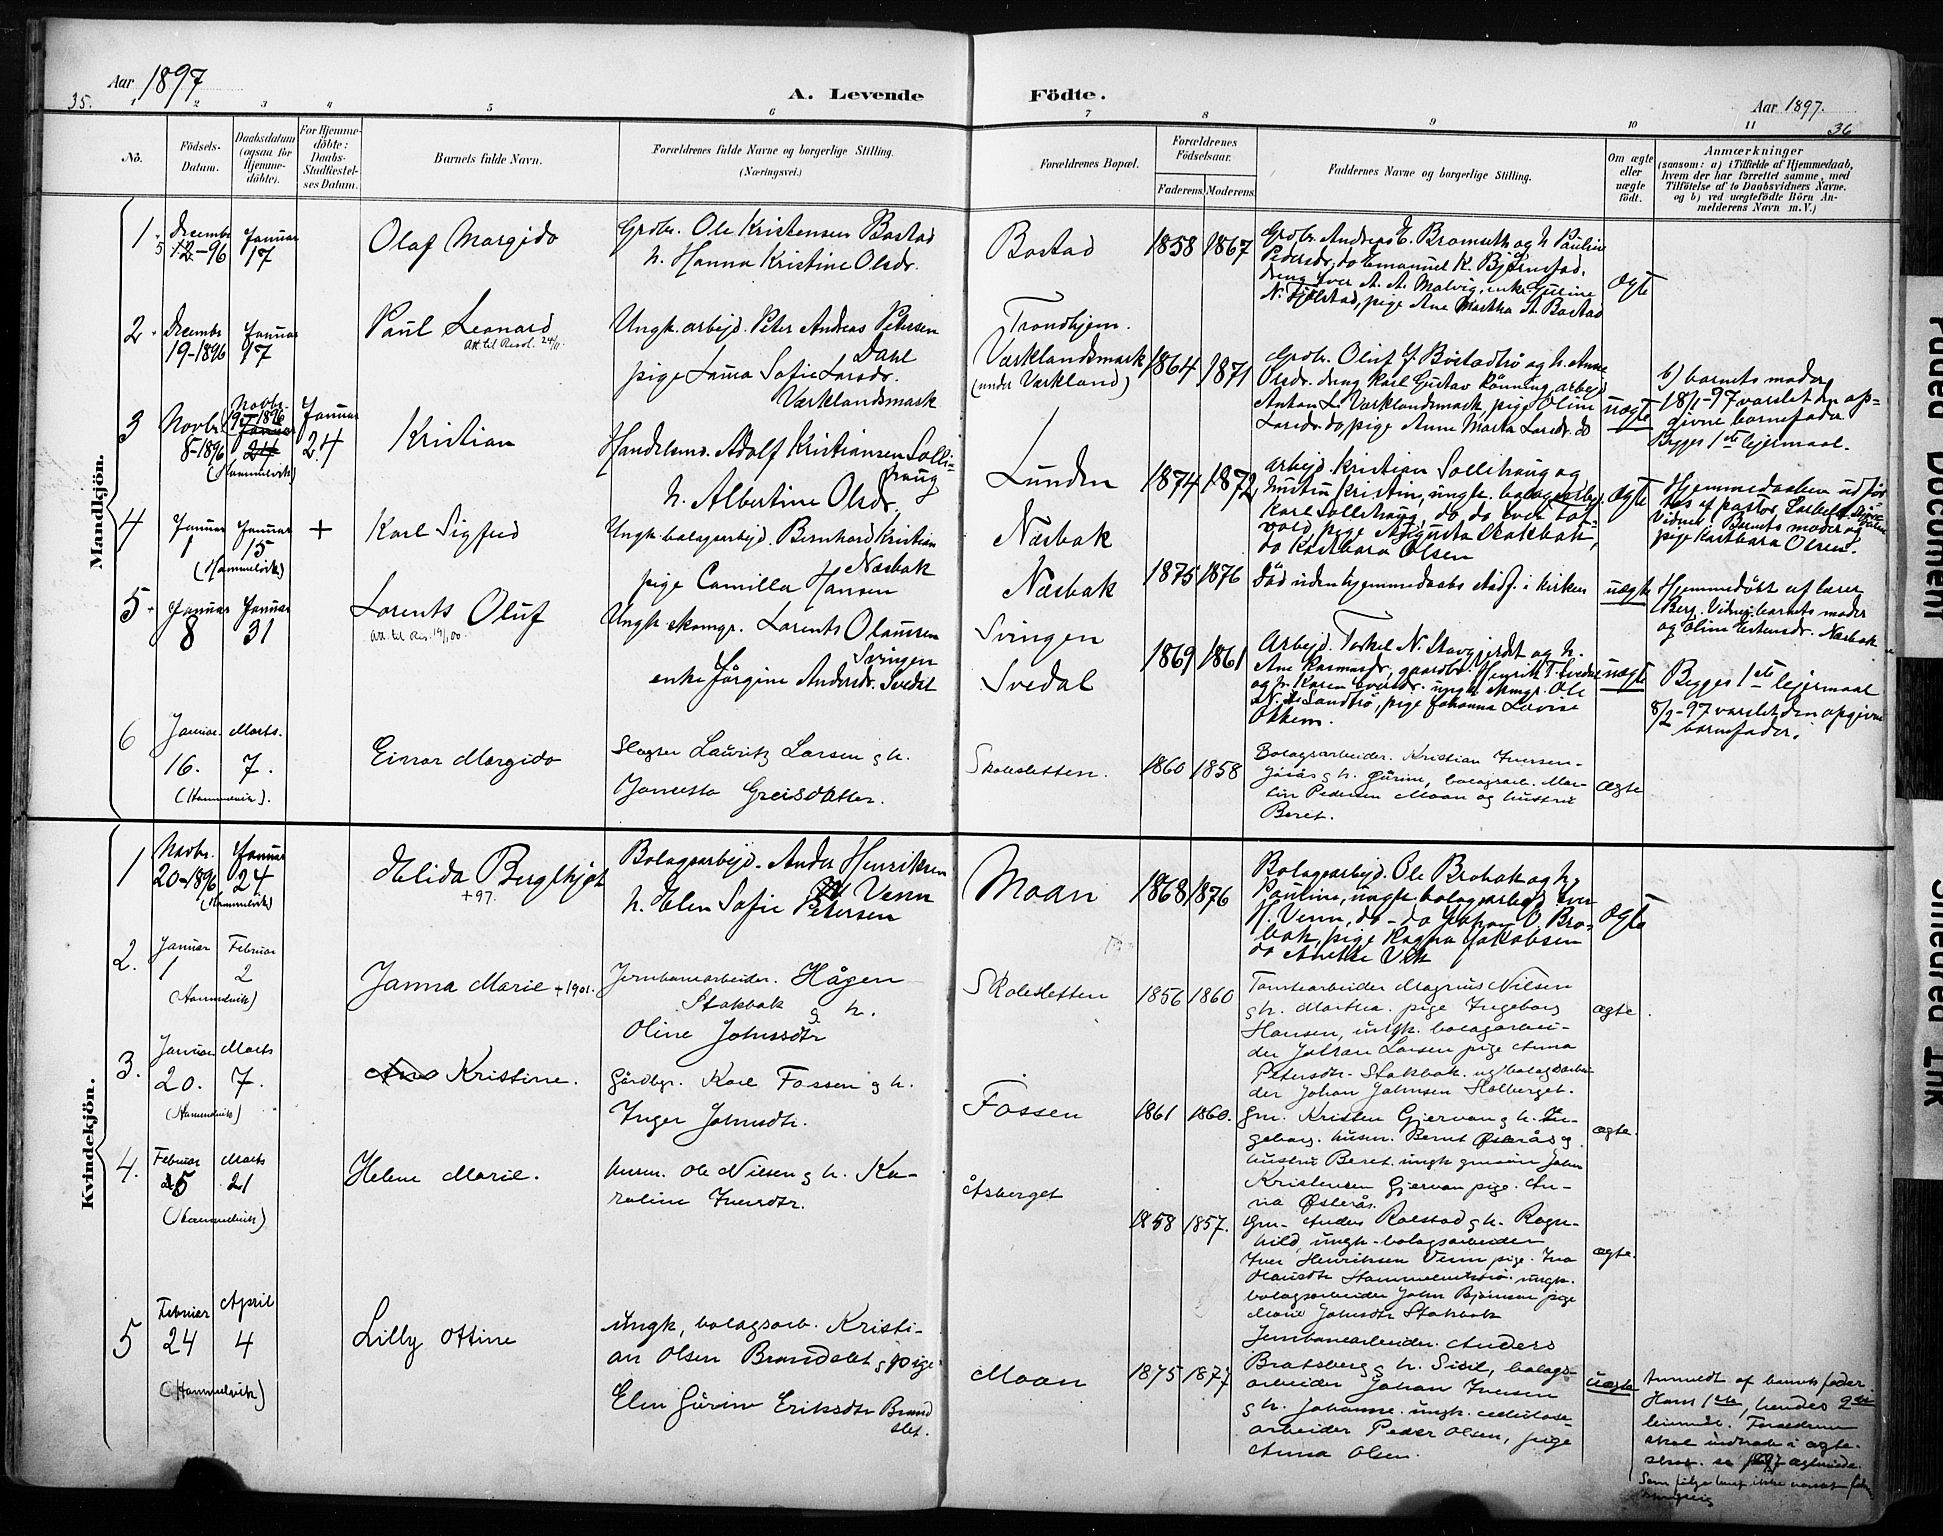 Aar 1897
35.
A. Levende Födte.
Aar 1897.
36
1 2 3 4 5 6 7 8 9 10 11
No.
Födsels-
Datum.
Daabsdatum
(ogsaa for
Hjemme-
döbte).
For Hjemme-
döbte:
Daabs-
Stadfæstel-
ses Datum.
Barnets fulde Navn.
Forældrenes fulde Navne og borgerlige Stilling.
(Næringsvei.)
Forældrenes Bopæl.
Forældrenes
Födselsaar.
Faderens. Moderens.
Faddernes Navne og borgerlige Stilling.
Om ægte
eller
uægte
födt.
Anmærkninger
(saasom: a) i Tilfælde af Hjemmedaab,
hvem der har forrettet samme, med
Tilföielse af to Daabsvidners Navne.
og b) ved uægtefödte Börn An-
melderens Navn m.V.)
Mandkjön.
1
Decembr
12-96
Januar
17
Olaf Margido
Grdbr. Ole Kristensen Bostad
h. Hanna Kristine Olsdr.
Bostad
1858 1867
Grdbr. Andreas E. Bromseth og h. Pauline
Pedersdr, do Emanuel K. Bjørnstad,
dreng Iver A. A. Malvig, enke Guline
N. Fjølstad, pige Ane Martha A. Bostad
Ægte
2
Decembr
19-1896
Januar
17
Paul Leonard
Att. til Resd. 24/11
Ungk. arbejd. Peter Andreas Petersen
Dahl
pige Laura Sofie Larsdr.
Værklandsmark
Trondhjem.
Værklandsmark
(under Værkland)
1864 1871
Grdbr. Oluf G. Bostadtrø og h. Anne
Olsdr. dreng Karl Gustav Rønning, arbejd
Anton L. Værklandsmark, pige Oline
Larsdr. do, pige Anne Marta Larsdr. do
uægte
b) barnets moder
18/1-97 varslet den op-
givne barnefader
Begges 1ste lejermaal.
3
Novbr
8-1896
Novbr.
19-1896
Januar
24
(Hommelvik)
Januar
24
Kristian
Handelsmd. Adolf Kristiansen Solli-
haug
h. Albertine Olsdr.
Lunden
1874 1872
arbejd. Kristian Sollihaug og
hustru Kristin, ungk. bolagsarbejd.
Karl Sollihaug, do do Sven Tol-
vold, pige Augusta Stokbak,
do Kastbara Olsen
Ægte
Hjemmedaaben udfør
tes af pastor
Vidner: Barnets moder og
pige Kastbara Olsen.
4
Januar
1
Januar
15
(Hommelvik)
+
Karl Sigfred
Ungk. bolagsarbejd. Bernhard Kristian
Næsbak
pige Camilla Hansen
Næsbak
Næsbak
1875 1876
Død uden hjemmedaabs Stadf. i kirken
uægte
Hjemmedøbt af lærer
Berg. Vidner: barnets moder
og Oline Estensdr. Næsbak
5
Januar
8
Januar
31
Lorents Oluf
Att. til Res. 19/1 00.
Ungk. skomgr. Lorents Olaussen
Svingen
enke Jørgine Andersdr. Svedal
Svingen
Svedal
1869 1861
Arbejd. Torkel N. Stavgjerdet og h.
Ane Rasmusdr, gaardbr. Henrik T. Svedal
og h. Karen Iversdr. ungk. skmgr. Ole
N. Sandtrø, pige Johanna Lovise
Okkem.
uægte
Begges 1ste lejermaal
8/2-97 varslet den opgivne
barnefader.
6
Januar.
16.
Marts.
7.
(Hommelvik).
Einar Margido
Slagter Lauritz Larsen g h.
Janetta Greisdatter.
Skolesletten.
1860 1858
Bolagsarbeider. Kristian Iversen-
Jøsås g h. Gurine, bolagsarb. Mar-
tin Pedersen Moan og hustru
Beret.
Ægte
Kvindekjön.
1
Novbr.
20-1896
Januar
24
(Hommelvik)
Helida Bergthjot
+97.
Bolagsarbejd. Anders Henriksen
Venn
h. Elen Sofie Petersen
Moan
1868 1876
Bolagsarbejd. Ole Brobak og h.
Pauline, ungk. bolagsarbejd. Iver
H. Venn, do - do Johan O. Bro-
bak, pige Ragna Jakobsen
do Anette Vik
Ægte
2.
Januar
1
Februar
2
(Hommelvik)
Janna Marie +1901.
Jernbanearbeider. Hågen
Stokbak g h.
Oline Johnsdtr
Skolesletten
1856 1860
Tomtearbeider Magnus Nilsen
g h. Martha. pige Ingeborg
Hansen, ungk. bolagsarbei-
der Johan Larsen pige Anna
Petersdtr. Stokbak. ug. bolagsarbei
der Johan Johnsen Halberget.
Ægte.
3.
Januar
20.
Marts
7.
(Hommelvik)
Kristine.
Gårdbgr. Karl Fossen g h.
Inger Johnsdtr.
Fossen
1861 1860.
Gm. Kristen Gjervan g h. In-
geborg. husm. Bernt Østerås g
hustru Beret. ungk gmsøn John
Kristensen Gjervan pige. An-
na Østerås.
Ægte.
4.
Februar
5
Marts
21
(Hommelvik)
Helene Marie.
husm. Ole Nilsen g h. Ka-
roline Iversdtr.
Åsberget
1858 1857.
Gm. Anders Rolstad g h. Ragn-
hild, ungk-bolagsarbeider
Iver Henriksen Venn pige. Ina
Hansdtr Hommelvikstrø. ungk.
bolagsarbeider John Bjørnsen pige
Marie Johnsdtr Stokbak
Ægte.
5
Februar
24
April
4
(Hommelvik)
Lilly Ottine
Ungk, bolagsarb. Kristi-
an Olsen Brandslet g pige
Elen Gurine Eriksdtr Brand
slet.
Moan
1875 1877
Jernbanearbeider. Anders
Bratsberg g h. Sisil, bolags-
arbeider Johan Iversen
g h. Johanne. ungk. cellulose-
arbeider Peder Olsen, pige
Anna Olsen.
uægte
Anmeldt af barnets fader
Hans 1ste, hendes 2det
leiermål. Forældrene
skal indtræde i ægte-
skab. se 1897 ægteviede.